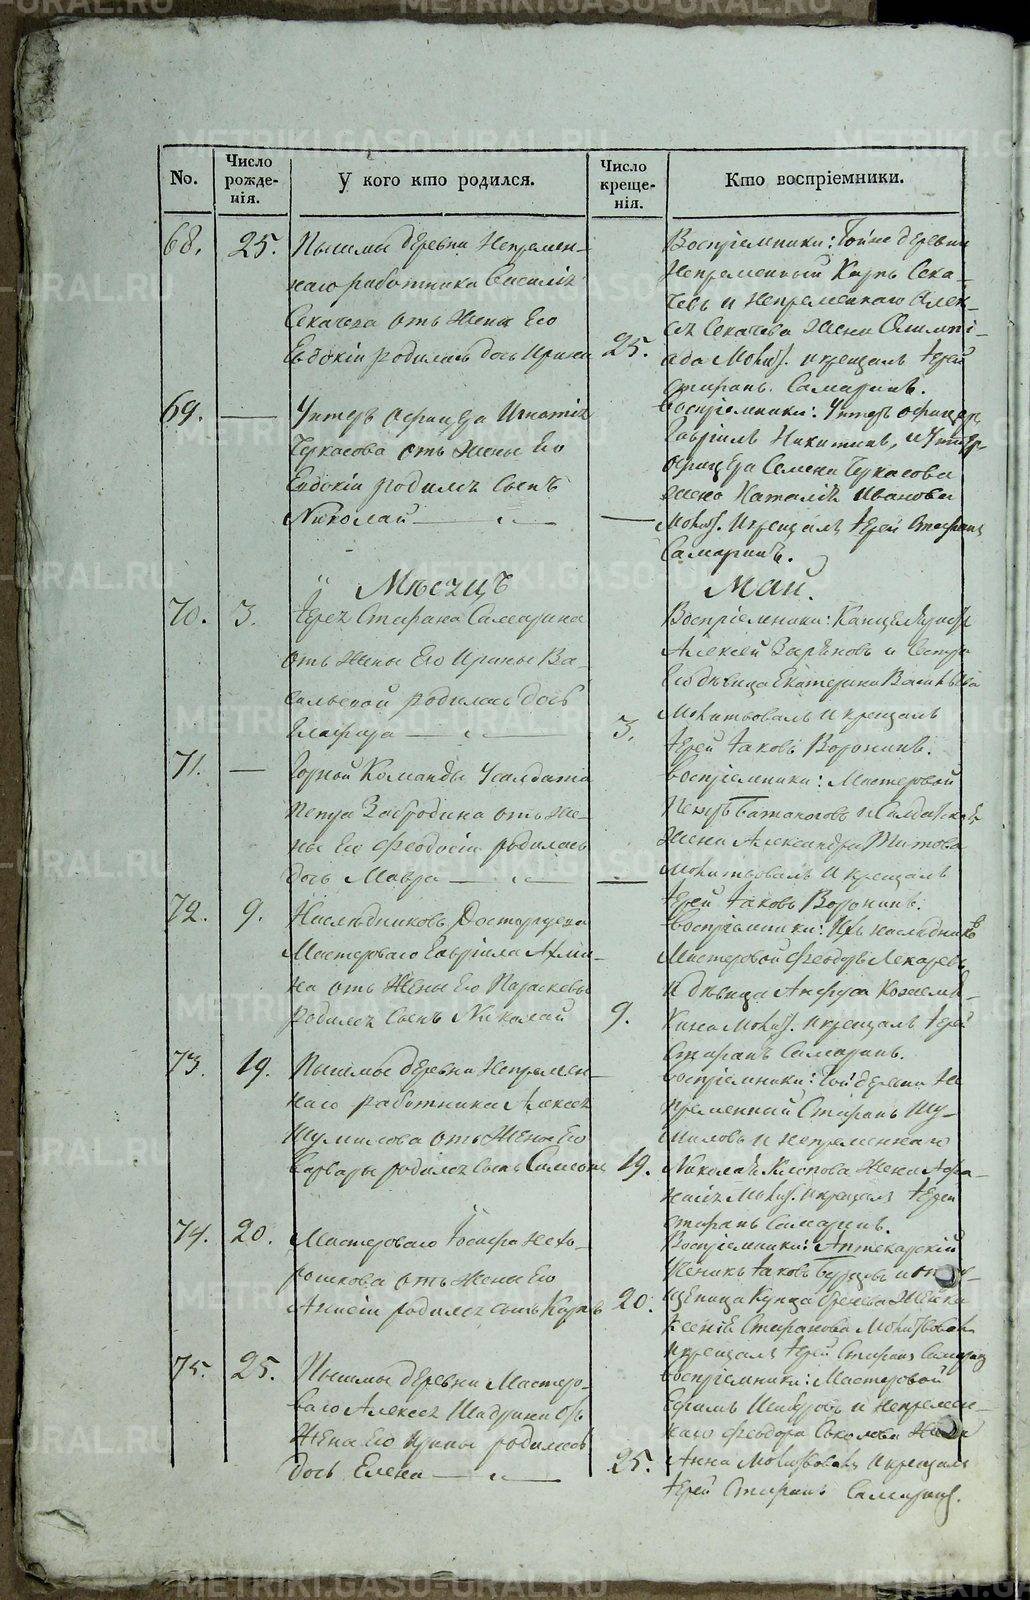 No.
Число рожде-
нія.
У кого кто родился.
Число креще-
нія.
Кто воспріемники.
68.
25.
Пышмы деревни Непремен-
наго работника Василія
Секачева отъ Жены Его
Евдокіи родилась дочь Ирина
25.
Воспріемники: Той же деревни
Непременный Карпъ Сека-
чевъ и Непременнаго Алек-
сѣя Секачева Жена Олимпі-
ада Молит. и крещалъ Іерей
Стефанъ Самаринъ.
69.
Унтеръ Офицера Игнатія
Черкасова отъ Жены Его
Евдокіи родился Сынъ
Николай
Воспріемники: Унтеръ офицеръ
Гавріилъ Никитинъ, и Унтеръ
офицера Семена Черкасова
Жена Наталія Иванова
Молит. и крещалъ Іерей Стефанъ
Самаринъ.
Мѣсяцъ
Май.
70.
3.
Іерея Стефана Самарина
отъ Жены Его Ирины Ва-
сильевой родилась дочь
Глафира
3.
Воспріемники: Канцеляристъ
Алексей
и
Его девица Екатерина
Молитвовалъ и крещалъ
Іерей Іаковъ Воронинъ.
71.
Горной Команды Усалдата
Петра Забродина отъ Же-
ны Его Феодосіи родилась
дочь Мавра
Воспріемники: Мастеровой
Петръ Батаноговъ и Салдатская
Жена Александра Титова
Молитвовалъ и крещалъ
Іерей Іаковъ Воронинъ.
72.
9.
Наследниковъ Расторгуева
Мастероваго Гавріила
отъ Жены Его Параскевы
родился Сынъ Николай
9.
Воспріемники: Ихъ наследниковъ
Мастеровой Феодоръ Лекаревъ
и девица Анфуса Кожемя-
кина Молит. и крещалъ Іерей
Стефанъ Самаринъ.
73.
19.
Пышмы деревни Непремен-
наго работника Алексея
Шумилова отъ Жены Его
Варвары родился Сынъ Симеонъ
19.
Воспріемники: Той деревни Не
пременный Стефанъ Шу-
миловъ и непременнаго
Николая Клепова Жена Афа-
насія Молит. и крещалъ Іерей
Стефанъ Самаринъ.
74.
20.
Мастероваго Іосифа Нехо-
рошкова отъ Жены Его
Анисіи родился сынъ Карпъ
20.
Воспріемники: Аптекарскій
Ученикъ Іаковъ и
Купца Жена
Ксенія Стефанова Молитвовалъ
и крещалъ Іерей Стефанъ Самаринъ
75.
25.
Пышмы деревни Мастеро-
ваго Алексея Шадрина Отъ
Жены Его Ирины родилась
дочь Елена
25.
Воспріемники: Мастеровой
Ефимъ и Непремен-
наго Феодора Соколова Жена
Анна Молитвовалъ и крещалъ
Іерей Стефанъ Самаринъ.
METRIKI.GASO-URAL.RU